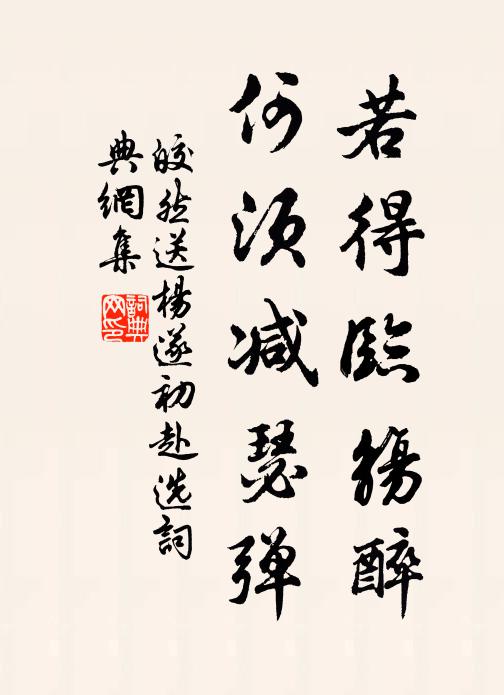 若得臨觴醉
何須減瑟彈
皎然送楊遂初赴选詞
典網集
詞典網印